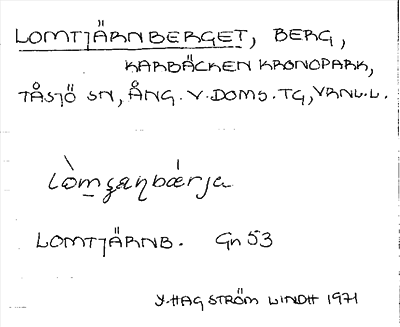 LOMTJÄRNBERGET, BERG,
KARBÄCKEN KRONOPARK,
TÅSJÖ SN, ÅNG. V. DOMS. TG, VRNL.L.
LOMTJÄRNB. Gn 53
Y. HAGSTRÖM LINDH 1971